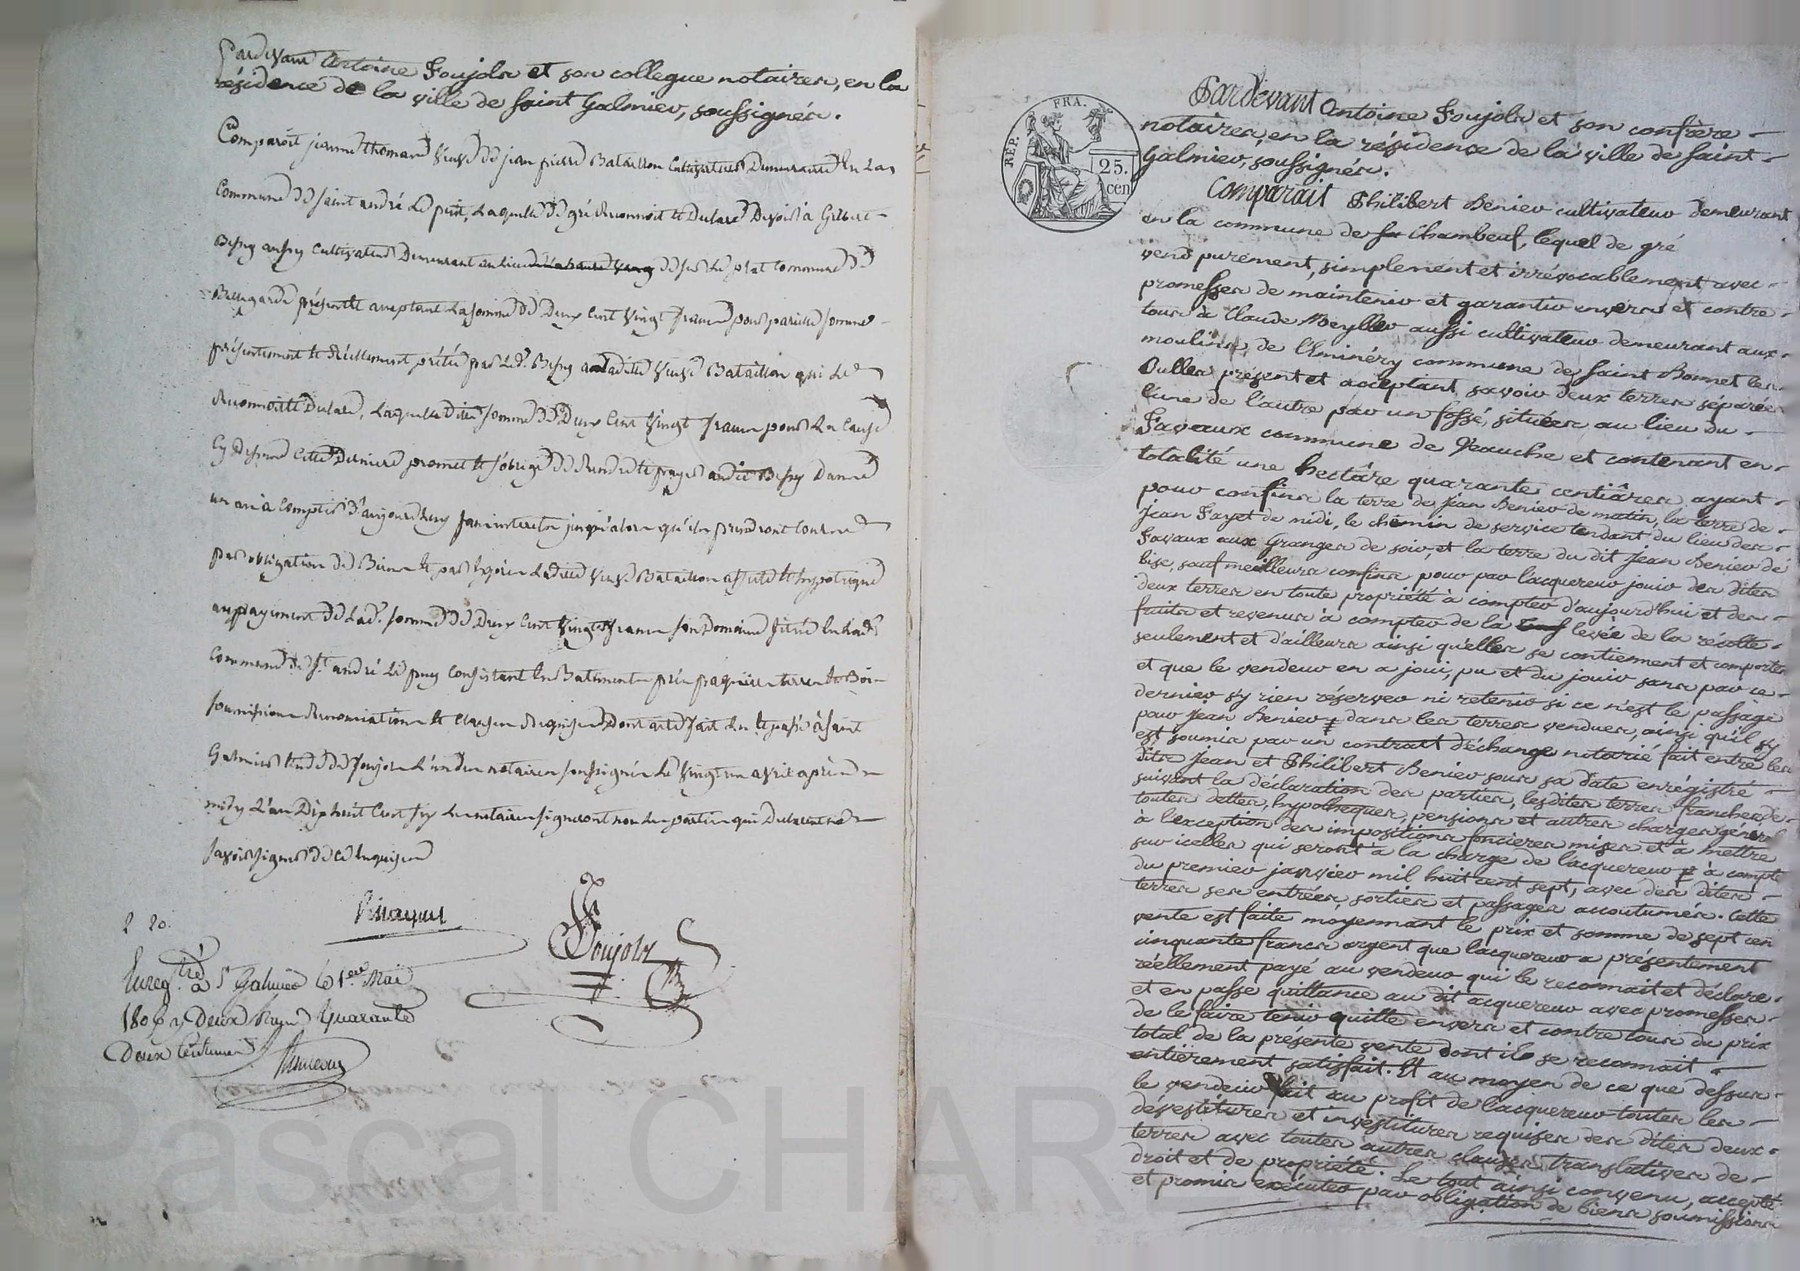 Pardevant Antoine Foujols et son collegue notaires, en la
résidence de la ville de Saint Galmier, soussignés.
Comparoit jeanne thomas veuve de jean pierre Bataillon Cultivatrice Demeurante en La
Commune de saint andré Le puit, Laquelle de gré Reconnoit et Declare Devoir à Gilbert
Besny aussy Cultivateur Demeurant au lieu de sur Le prat Commune de
Bellegarde présent et acceptant La somme de Deux Cent vingt francs pour pareille somme
présentement et Réellement prétée par Led. Besny a ladite veuve Bataillon qui Le
Reconnoit et Declare, Laquelle dite somme de Deux Cent vingt francs pour La Cause
Cy Dessus Cette Derniere promet et s'oblige de Rendre et payer audit Besny Dans
un an à Compter D'aujourdhuy sans interets jusqu'alors qu'ils prendront Cours
par obligation de Biens et par Exprès Ladite veuve Bataillon affecte et hypotéque
au payement de Lad. somme de Deux Cent vingt francs son Domaine situé en lad.
Commune de St. andré Le puy Consistant en Batiments prés paquiers terres et Bois
soumissions Renonciations et Clauses Requises Dont acte fait Lu et passé à saint
Galmier Etude de foujols L'un des notaires soussignés Le vingt un avril après
midy L'an Dix huit Cent six Les notaires signeront non La partie qui Declare ne
savoir signer de ce Enquise
2 20.
Foujols
Enregtré à St Galmier le 1er Mai
1806 Deux francs Quarante
Deux Centimes
REP. FRA.
25.
cen
Pardevant Antoine Foujols et son confrère
notaires, en la résidence de la ville de Saint
Galmier, soussignés.
Comparait Philibert Benier cultivateur demeurant
en la commune de Chambeuf, lequel de gré
vend purement, simplement et irrévocablement avec
promesses de maintenir et garantir envers et contre
tous à Claude Meyller aussi cultivateur demeurant aux
moulins de l'Eminéry commune de Saint Bonnet les
Oulles présent et acceptant savoir deux terres séparées
l'une de l'autre par un fossé, situées au lieu du
Favaux commune de Veauche et contenant en
totalité une hectâre quarante centiâres ayant
pour confins la terre de Jean Benier de matin, la terre de
Jean Fayet de midi, le chemin de service tendant du lieu des
Favaux aux Granges de soir et la terre du dit Jean Benier de
bise, sauf meilleurs confins pour par lacquereur jouir des dites
deux terres en toute propriété à compter d'aujourd'hui et des
fruits et revenus à compter de la levée de la récolte
seulement et d'ailleurs ainsi qu'elles se contiennent et comportent
et que le vendeur en a joui, pu et du jouir sans par ce
dernier s'y rien réserver ni retenir si ce n'est le passage
pour Jean Benier dans les terres vendues, ainsi qu'il s'y
est soumis par un contrait d'échange notarié fait entre les
dits Jean et Philibert Benier sous sa date enrégistré
suivant la déclaration des parties, lesdites terres franches de
toutes dettes, hypotheques, pensions et autres charges général
à l'exception des impositions foncieres mises et à mettre
sur icelles qui seront à la charge de lacquereur à compte
du premier janvier mil huit cent sept, avec des dites
terres ses entrées sorties et passages accoutumés. Cette
vente est faite moyennant le prix et somme de sept cen
cinquante francs argent que lacquereur a présentement
réellement payé au vendeur qui le reconnait et déclare
et en passe quittance au dit acquereur avec promesses
de le faire tenir quitte envers et contre tous du prix
total de la présente vente dont il se reconnait
entièrement satisfait. Et au moyen de ce que dessus
le vendeur fait au profit de lacquereur toutes les
dévestitures et investitures requises des dites deux
terres avec toutes autres clauses translatives de
droit et de propriété. Le tout ainsi convenu, accepté
et promis exécuter par obligation de biens soumissions
Pascal CHAR